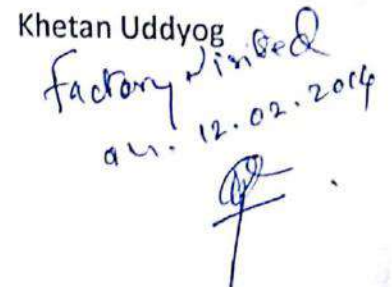 Khetan Uddyog
Factory visited
on. 12.02.2014